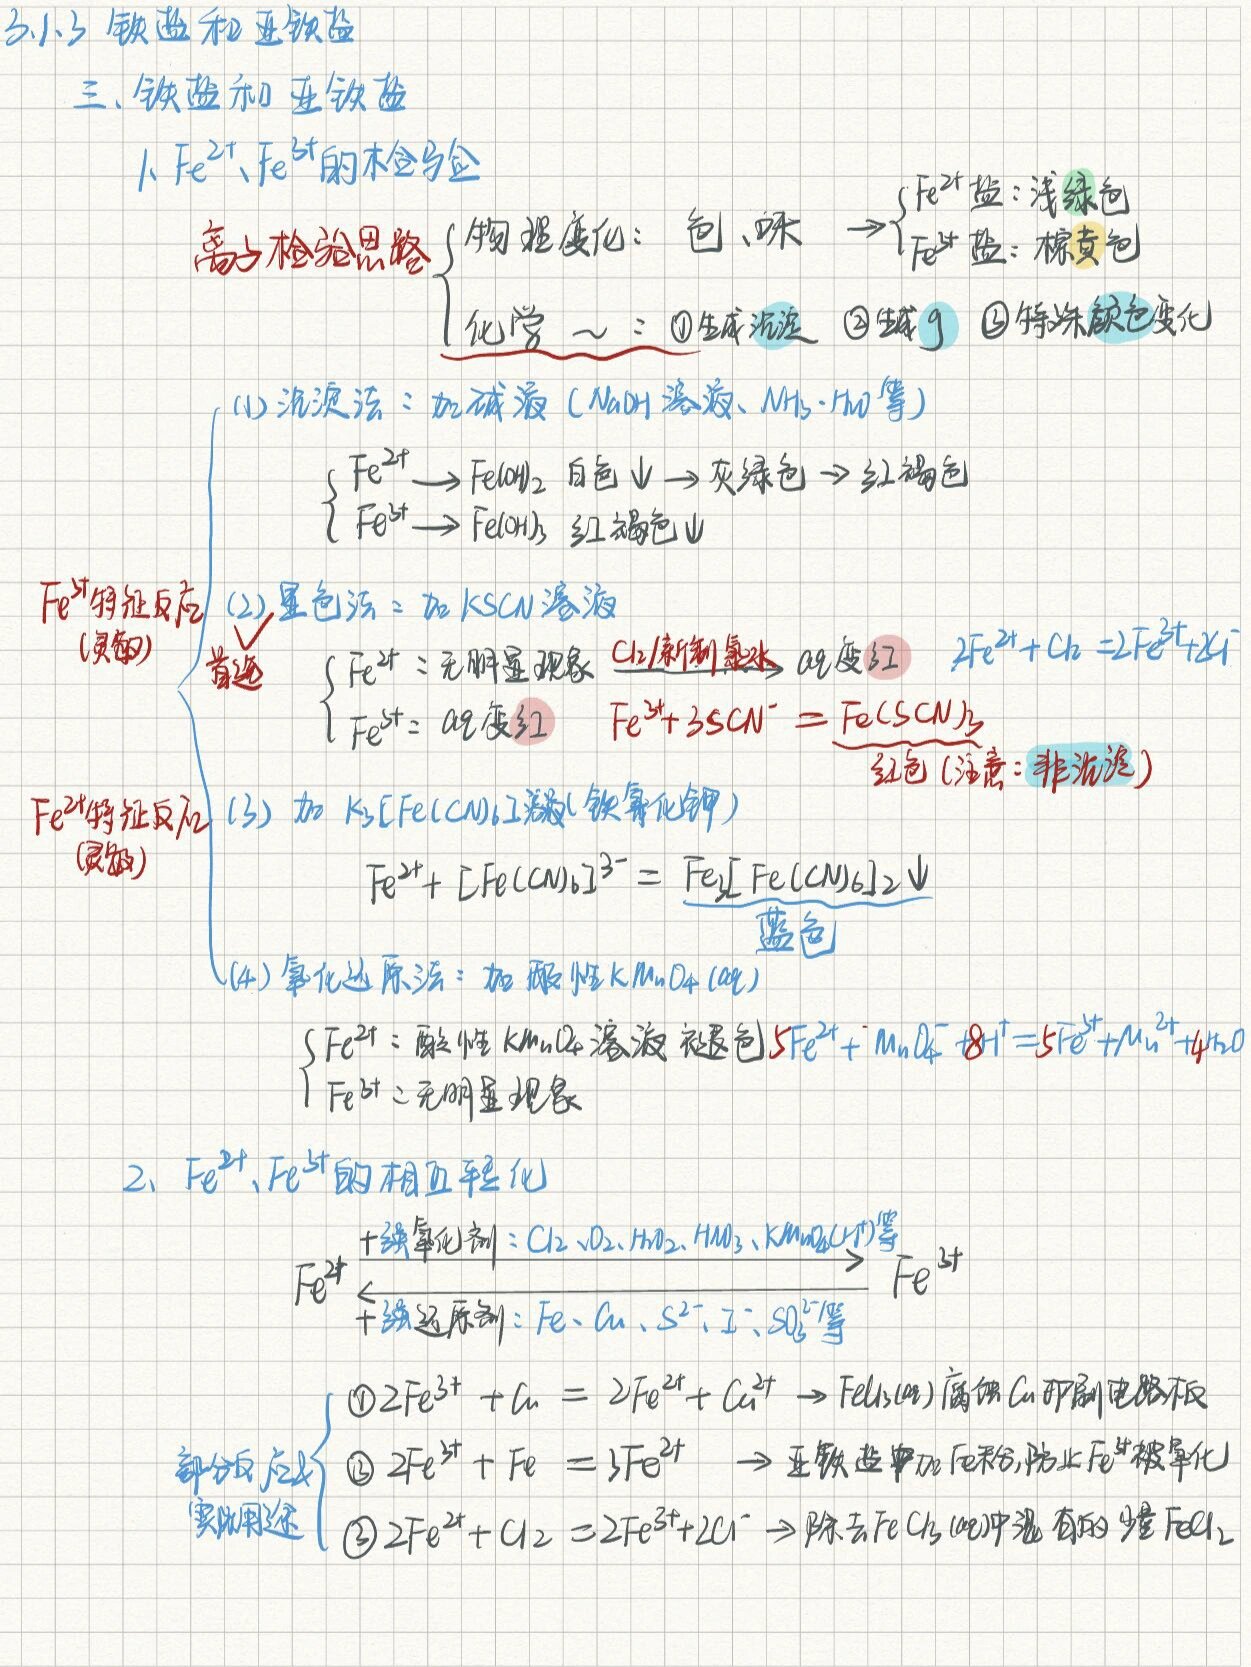 3.1.3 铁盐和亚铁盐
三、铁盐和亚铁盐
1、Fe²⁺、Fe³⁺的检验
离子检验思路
物理变化：色、味 → Fe²⁺盐：浅绿色
Fe³⁺盐：棕黄色
化学～：①生成沉淀 ②生成g ③特殊颜色变化
(1) 沉淀法：加碱液（NaOH溶液、NH₃·H₂O等）
Fe²⁺ → Fe(OH)₂ 白色↓ → 灰绿色 → 红褐色
Fe³⁺ → Fe(OH)₃ 红褐色↓
Fe³⁺特征反应
(灵敏)
(2) 显色法：加KSCN溶液
首选
Fe²⁺：无明显现象 Cl₂/新制氯水 → aq变红 2Fe²⁺+Cl₂=2Fe³⁺+2Cl⁻
Fe³⁺：aq变红 Fe³⁺+3SCN⁻ = Fe(SCN)₃
红色（注意：非沉淀）
Fe²⁺特征反应
(灵敏)
(3) 加 K₃[Fe(CN)₆]溶液(铁氰化钾)
Fe²⁺+[Fe(CN)₆]³⁻ = Fe₃[Fe(CN)₆]₂↓
蓝色
(4) 氧化还原法：加酸性KMnO₄(aq)
Fe²⁺：酸性KMnO₄溶液褪色 5Fe²⁺+MnO₄⁻+8H⁺=5Fe³⁺+Mn²⁺+4H₂O
Fe³⁺：无明显现象
2、Fe²⁺、Fe³⁺的相互转化
+强氧化剂：Cl₂、O₂、H₂O₂、HNO₃、KMnO₄(H⁺)等
Fe²⁺ Fe³⁺
+强还原剂：Fe、Cu、S²⁻、I⁻、SO₃²⁻等
部分反应及
实际用途
①2Fe³⁺+Cu = 2Fe²⁺+Cu²⁺ → FeCl₃(aq)腐蚀Cu印刷电路板
②2Fe³⁺+Fe =3Fe²⁺ → 亚铁盐中加Fe粉,防止Fe³⁺被氧化
③2Fe²⁺+Cl₂=2Fe³⁺+2Cl⁻ → 除去FeCl₃(aq)中混有的少量FeCl₂